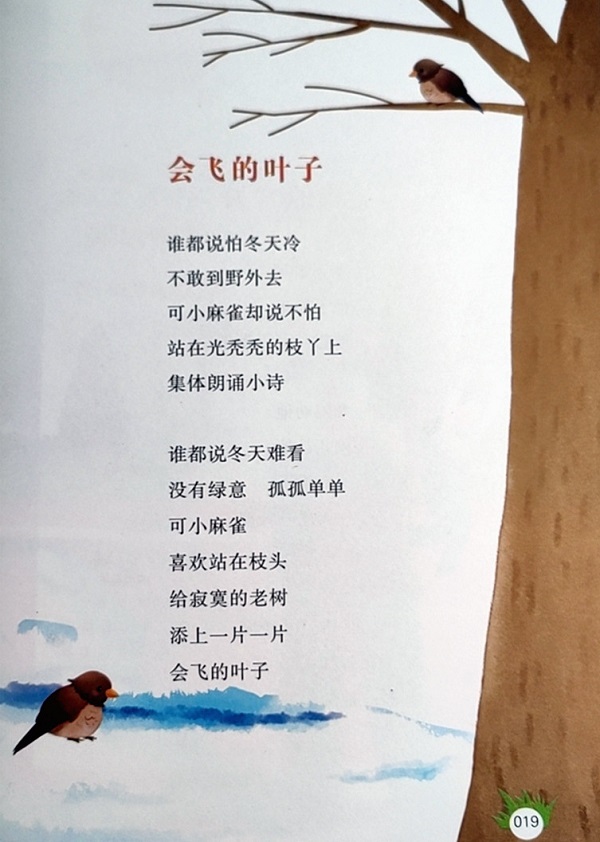 会飞的叶子
谁都说怕冬天冷
不敢到野外去
可小麻雀却说不怕
站在光秃秃的枝丫上
集体朗诵小诗
谁都说冬天难看
没有绿意　孤孤单单
可小麻雀
喜欢站在枝头
给寂寞的老树
添上一片一片
会飞的叶子
019